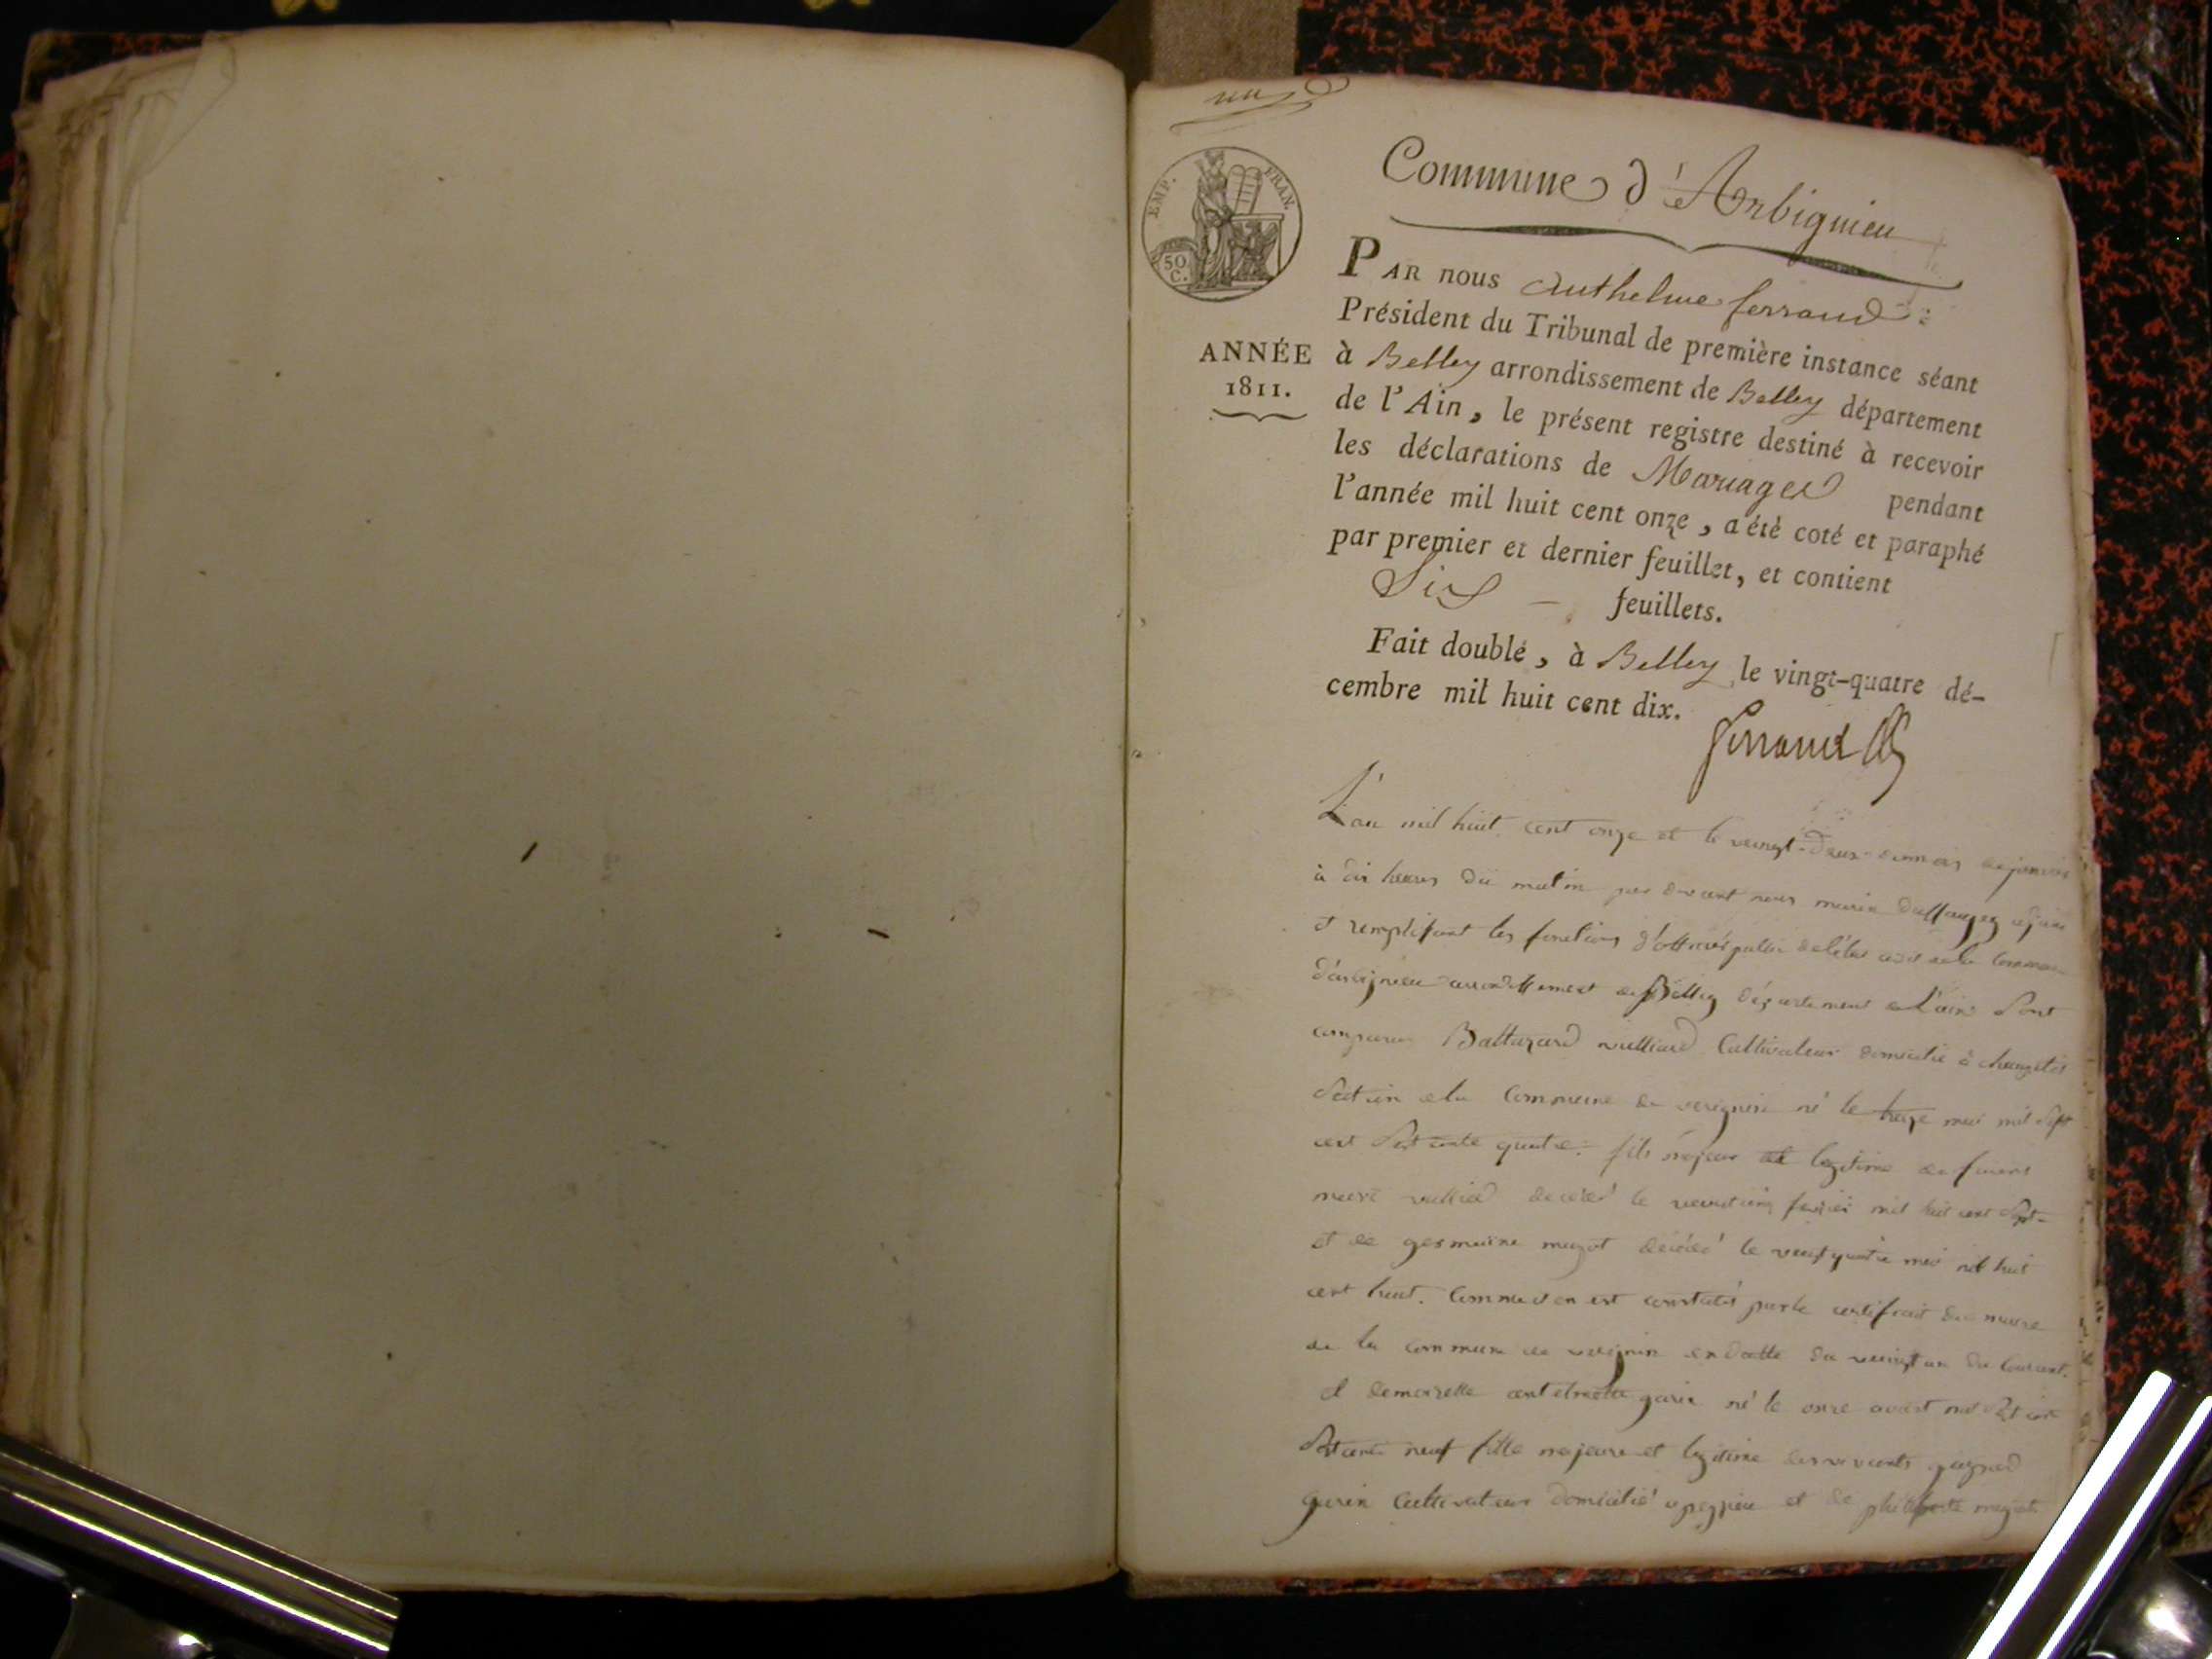 un
EMP. FRAN.
50 C.
Commune d'Arbignieu
PAR nous Anthelme ferrand
Président du Tribunal de première instance séant
ANNÉE 1811.
à Belley arrondissement de Belley département
de l'Ain, le présent registre destiné à recevoir
les déclarations de Mariages pendant
l'année mil huit cent onze, a été coté et paraphé
par premier et dernier feuillet, et contient
Six feuillets.
Fait doublé, à Belley le vingt-quatre dé-
cembre mil huit cent dix.
ferrand
L'an mil huit cent onze et le vaingt-deux du mois de janvier
à dix heures du matin par devant nous maire
et remplissant les fonctions d'officier public de l'état civil de la Commune
d'arbignieu arrondissement de Belley département de L'ain Sont
comparus Baltazard vulliard Cultivateur domicilié à
Section de la Commune de verignin né le treize mai mil Sept
cent Septante quatre. fils majeur et legitime de
vulliod décédé le février mil huit cent Sept
et de germaine décédé le mil huit
cent huit. Comme il en est constaté par le certificat du maire
de la commune de verignin en datte du vaingt un du Courant.
et demoiselle garin né le onze mil Sept cent
Septante neuf fille majeure et legitime des vivants
garin Cultivateur domicilié a peyzieu et de